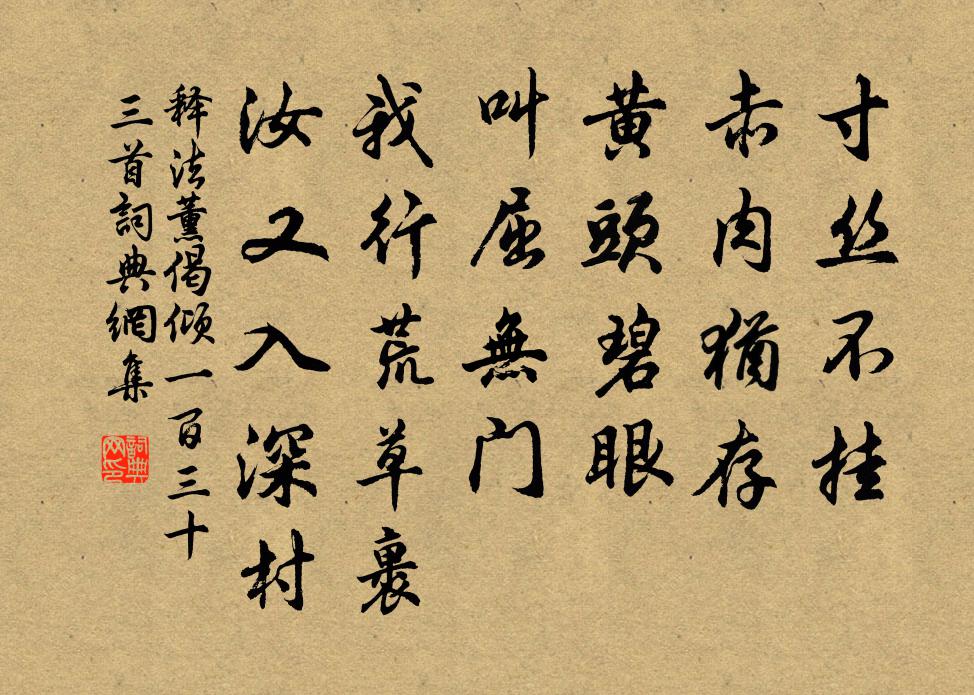 寸丝不挂
赤肉猶存
黄頭碧眼
叫屈無门
我行荒草裹
汝又入深村
释法薰偈倾一百三十
三首詞典網集
詞典
网印